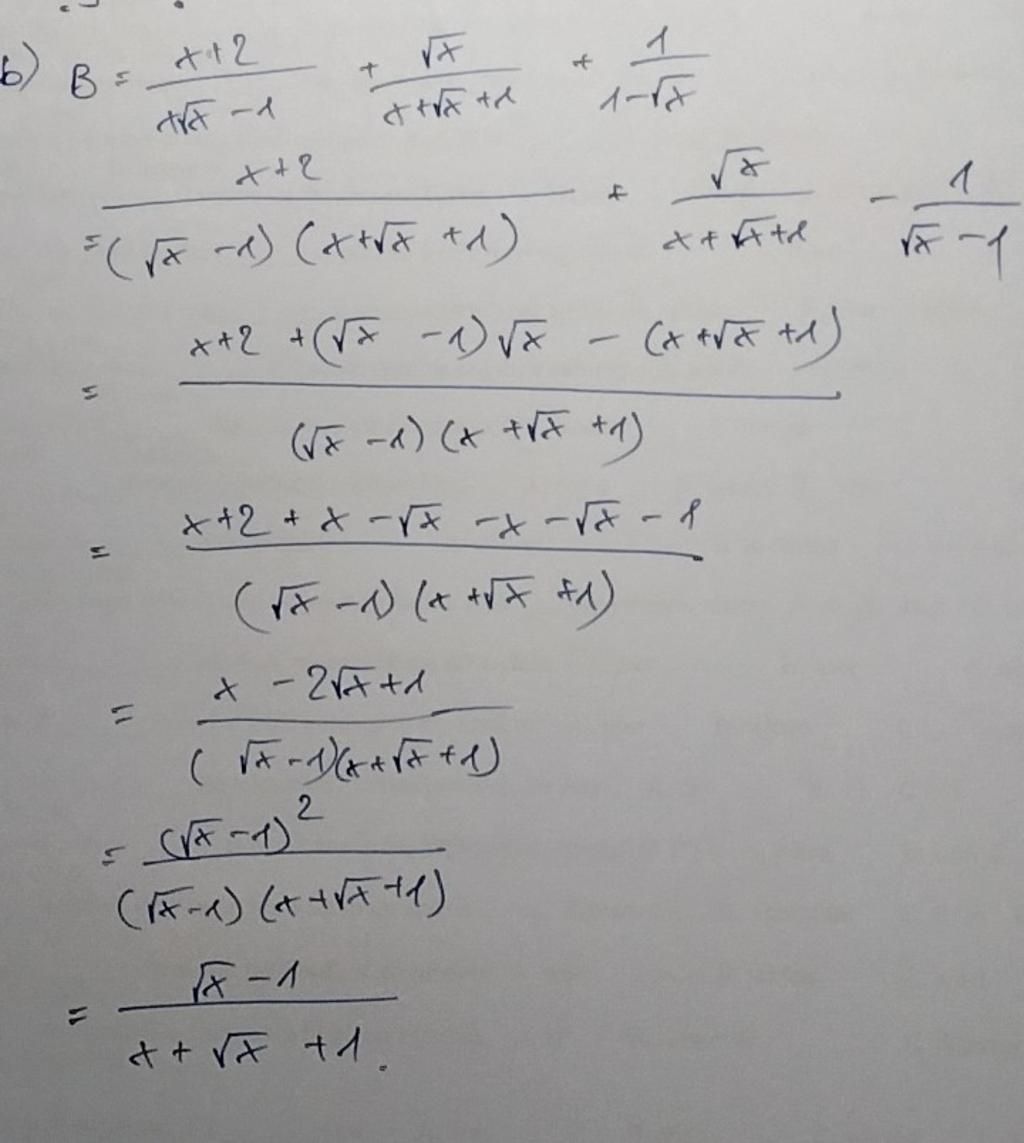 b) B = \frac{x+2}{x\sqrt{x}-1} + \frac{\sqrt{x}}{x+\sqrt{x}+1} + \frac{1}{1-\sqrt{x}}
= \frac{x+2}{(\sqrt{x}-1)(x+\sqrt{x}+1)} + \frac{\sqrt{x}}{x+\sqrt{x}+1} - \frac{1}{\sqrt{x}-1}
= \frac{x+2+(\sqrt{x}-1)\sqrt{x}-(x+\sqrt{x}+1)}{(\sqrt{x}-1)(x+\sqrt{x}+1)}
= \frac{x+2+x-\sqrt{x}-x-\sqrt{x}-1}{(\sqrt{x}-1)(x+\sqrt{x}+1)}
= \frac{x-2\sqrt{x}+1}{(\sqrt{x}-1)(x+\sqrt{x}+1)}
= \frac{(\sqrt{x}-1)^2}{(\sqrt{x}-1)(x+\sqrt{x}+1)}
= \frac{\sqrt{x}-1}{x+\sqrt{x}+1}.